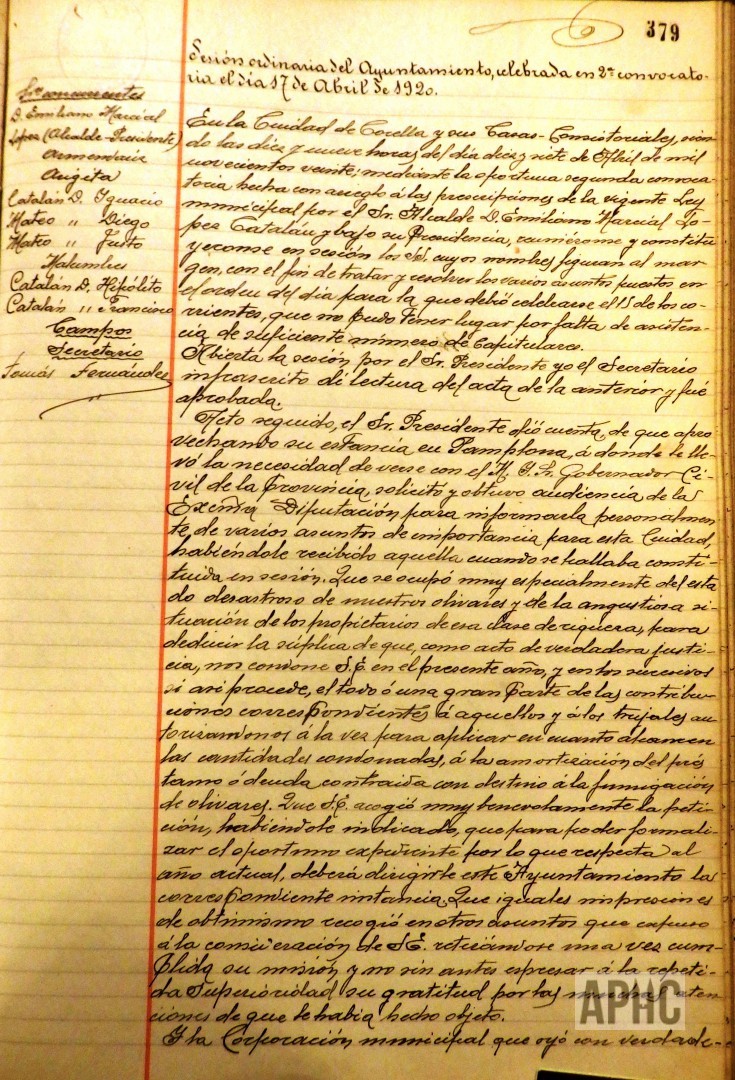 379
Sesión ordinaria del Ayuntamiento, celebrada en 2ª convocato-
ria el día 17 de Abril de 1920.
Sres concurrentes
D. Emiliano Marcial
López (Alcalde-Presidente)
Armendariz
Angita
Catalán D. Ignacio
Mateo „ Diego
Mateo „ Justo
Catalán D. Hipólito
Catalán „ Francisco
Campos
Secretario
Tomás Fernández
En la Cuidad de Corella y sus Casas-Consistoriales, sien-
do las diez y nueve horas del día diez y siete de Abril de mil
novecientos veinte; mediante la oportuna segunda convoca-
toria hecha con arreglo á las prescripciones de la vigente Ley
municipal por el Sr. Alcalde D. Emiliano Marcial Ló-
pez Catalán y bajo su Presidencia, reuniéronse y constitu
yeronse en sesión los Sres. cuyos nombres figuran al mar-
gen, con el fin de tratar y resolver los varios asuntos puestos en
el orden del día para la que debió celebrarse el 15 de los co-
rrientes, que no pudo tener lugar por falta de asisten-
cia de suficiente número de Capitulares.
Abierta la sesión por el Sr. Presidente yo el Secretario
infrascrito di lectura del acta de la anterior y fué
aprobada.
Acto seguido, el Sr. Presidente dió cuenta, de que apro
vechando su estancia en Pamplona, á donde le lle-
vó la necesidad de verse con el M. I. Sr. Gobernador Ci-
vil de la Provincia, solicitó y obtuvo audiencia de la
Excma Diputación para informarla personalmen-
te, de varios asuntos de importancia para esta Cuidad,
habiéndole recibido aquella cuando se hallaba consti-
tuida en sesión. Que se ocupó muy especialmente del esta
do desastroso de nuestros olivares y de la angustiosa si-
tuación de los propietarios de esa clase de riqueza, para
deducir la súplica de que, como acto de verdadera justi-
cia, nos condone S.E. en el presente año, y en los sucesivos
si asi procede, el todo ó una gran parte de las contribu-
ciones correspondientes á aquellos y á los trujales au-
torizandonos á la vez para aplicar en cuanto alcancen
las cantidades condonadas, á la amortización del prés
tamo ó deuda contraida con destino á la fumigación
de olivares. Que S.E. acogió muy benevolamente la peti-
ción, habiéndole indicado, que para poder formali-
zar el oportuno expediente por lo que respecta al
año actual, deberá dirigirle este Ayuntamiento la
correspondiente instancia. Que iguales impresiones
de obtimismo recogió en otros asuntos que expuso
á la consideración de S.E. retirándose una vez cum-
plida su misión y no sin antes espresar á la repeti-
da Superioridad su gratitud por las muchas aten-
ciones de que le había hecho objeto.
Y la Corporación municipal que oyó con verdade-
APHC